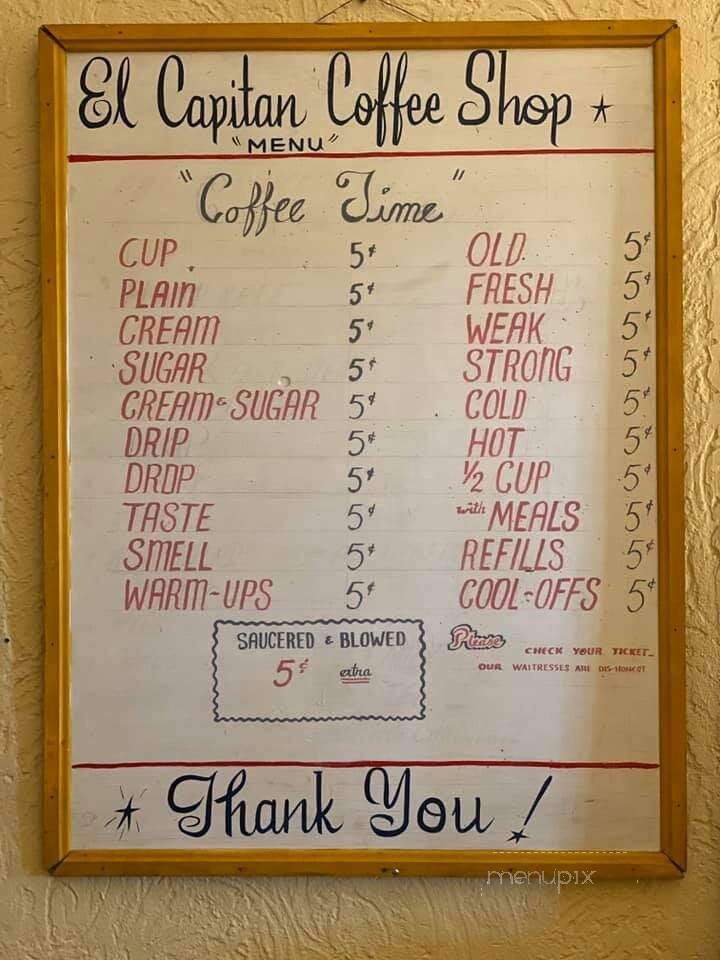 El Capitan Coffee Shop
"MENU"
"Coffee Time"
CUP 5¢
PLAIN 5¢
CREAM 5¢
SUGAR 5¢
CREAM & SUGAR 5¢
DRIP 5¢
DROP 5¢
TASTE 5¢
SMELL 5¢
WARM-UPS 5¢
OLD 5¢
FRESH 5¢
WEAK 5¢
STRONG 5¢
COLD 5¢
HOT 5¢
½ CUP 5¢
with MEALS 5¢
REFILLS 5¢
COOL-OFFS 5¢
SAUCERED & BLOWED
5¢ extra
Please CHECK YOUR TICKET_
OUR WAITRESSES ARE DIS-HONEST
Thank You!
menupix